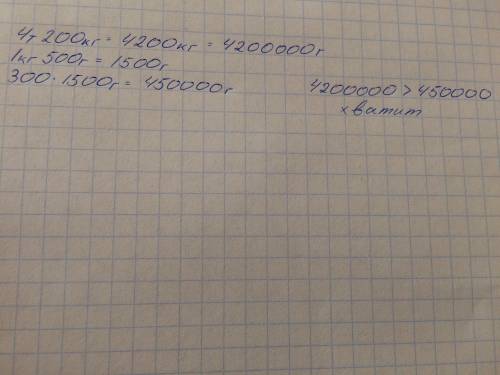 4т 200кг = 4200кг = 4200000г
1кг 500г = 1500г
300 · 1500г = 450000г
4200000 > 450000
хватит